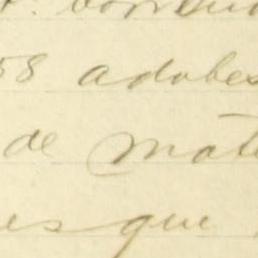 58 adobes
de mate
es que